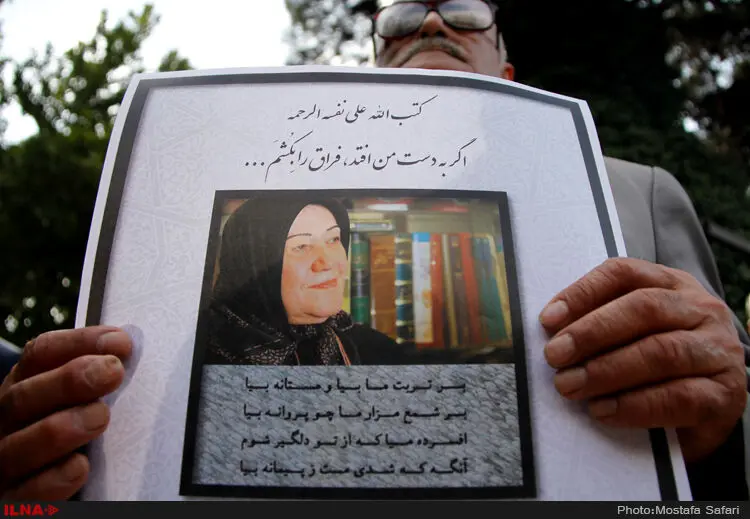 کتب الله علی نفسه الرحمه
اگر به دست من افتد، فراق را بکُشَم ...
بر تربت ما بیا و مستانه بیا
بر شمع مزار ما چو پروانه بیا
افسرده میا که از تو دلگیر شوم
آنگه که شدی مست ز پیمانه بیا
ILNA
Photo:Mostafa Safari